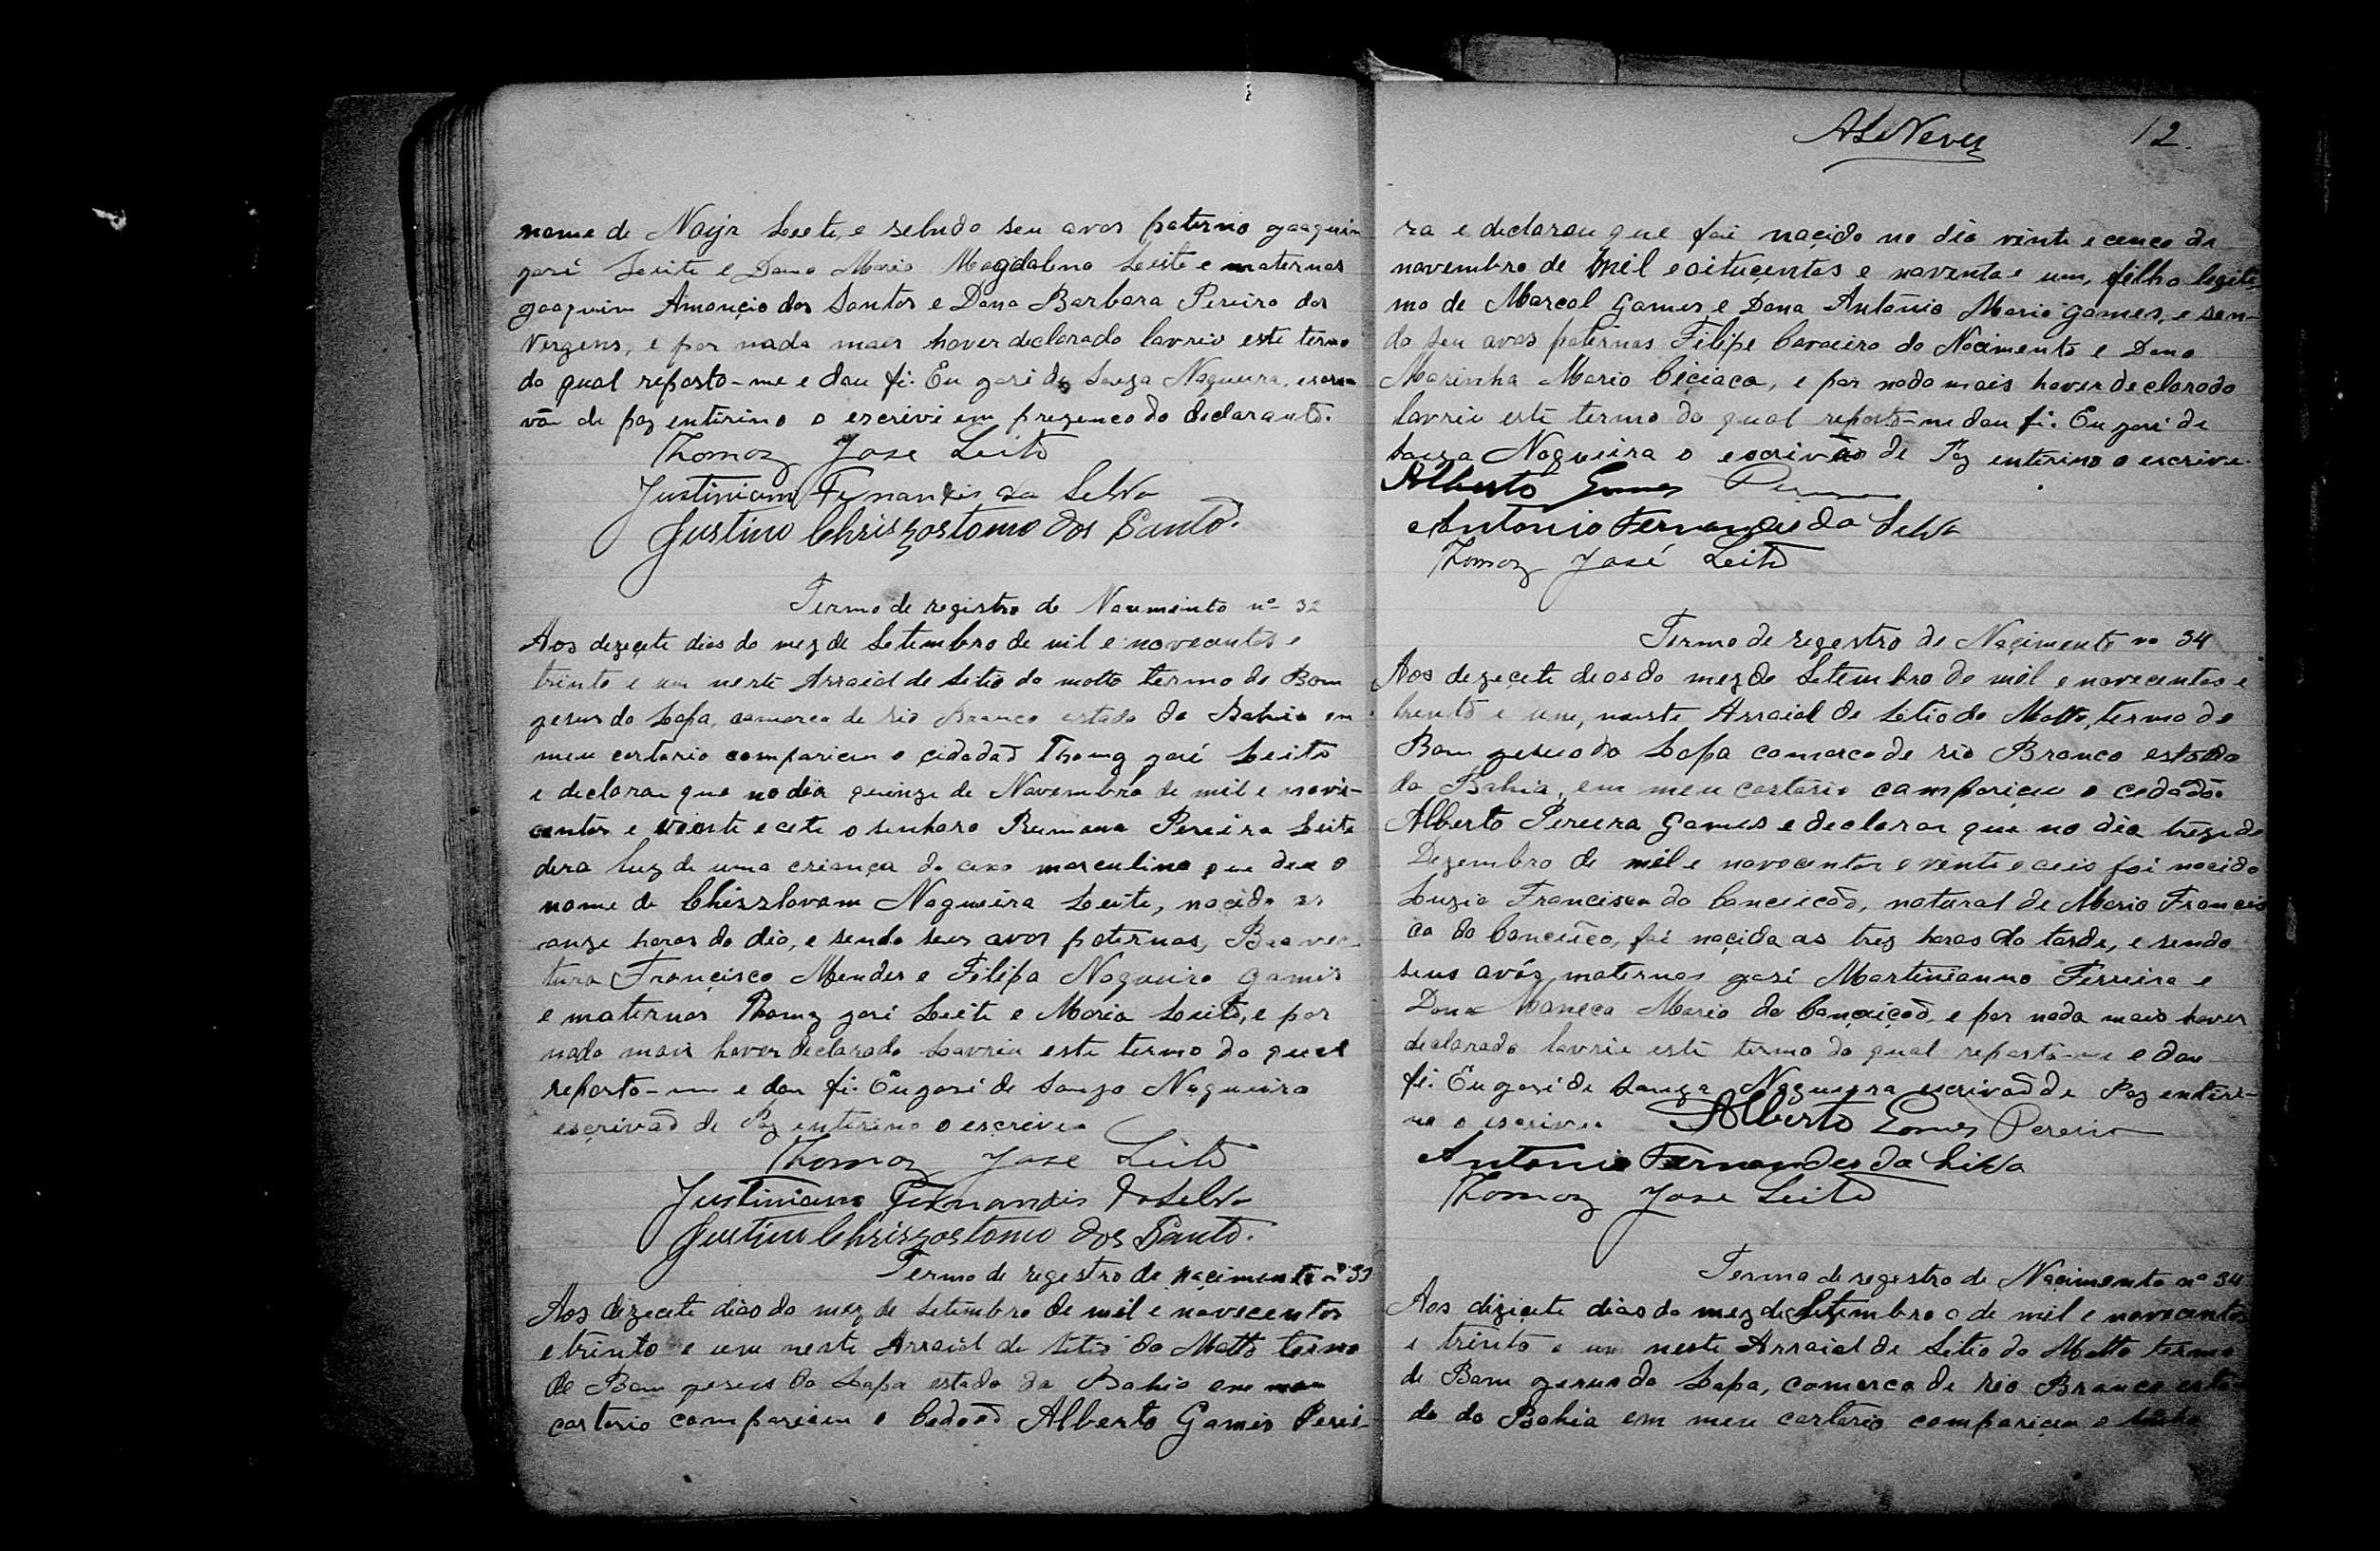 nome de Nayr Leete, e sebudo seu avos paterno joaquim
josé Leite e Dona Maria Magdalena Leite e maternas
joaquim Amançio dos Santos e Dona Barbara Pereira das
Vergens, e por nada maes haver declarado lavriu este termo
do qual reposto-me e dou fé. Eu josé de Souza Nogueira, escre
vão de paz enterino o escrivi em prezenco do declarante.
Thomaz Jose Leite
Justiniam Fernandis da Selva
Justino Chriszostomo dos Santo.
Termo de registro de Nacimento nº 32
Aos dezecete dias do mez de Setembro de mil e novecentos e
trinta e um neste Arraial de Sitio do matto termo de Bom
jesus da Lapa, comarca de rio Branco estado da Bahia em
meu cartorio compariceu o cidadaõ Thomz josé Leite
e declarou que no dia quinze de Novembro de mil e nove-
centos e viente e cete o senhara Rumana Pereira Leite
dera luz de uma criança do cexo masculino que deu o
nome de Chizslovam Nogueira Leite, nacido as
onze horas do dia, e sendo seus avos paternas,
tura Françisco Mendes e Filipa Nogueira Games
e maternos Thomz josé Leite e Maria Leite, e por
nada mais haver declarado Lavriu este termo do qual
reporto-me e dou fé. Eu josé de Souza Nogueira
esçrivaõ de Paz enterino o escreveu
Thomaz Jose Leite
Justiniano Fernandis da Selva
Justino Chriszostomo dos Santo.
Termo de regestro de naçimento nº 33
Aos dizecete dias do mez de Setembro de mil e novecentos
e trinta e um neste Arraial de Sitio do Matto termo
de Bom jesus da Lapa estado da Bahia em meu
cartorio compariceu o Cedadaõ Alberto Games Perei-
ALdNeves 12.
ra e declarou que foi naçido no dia vinte e cenco de
novembro de mil e oitucentos e noventa e um, filho legiti
mo de Marcal Games e Dona Antonia Maria Games, e sen-
do seu avos paternas Filipe Cavaceiro do Nacimento e Dona
Marinha Maria Ceçiaca, e por nada mais haver declarado
lavriu este termo do qual reposto-me dou fé. Eu josé de
Souza Nogueira o escrivão de Paz enterino o escreve.
Alberto Gomes Pereira
Antonio Fernandes da Selva
Thomaz José Leite
Termo de regestro de Naçimento nº 34
Aos dezeçete deas do mez de Setembro de mil e novecentos e
trinta e um, neste Arraial de Sitio do Matto, termo de
Bom jesus da Lapa comarca de rio Branco estado
da Bahia, em meu cartorio compariçeu o cedadaõ
Alberto Pereira Games e declarou que no dia treze de
Dezembro de mil e novecentos e vente e ceis foi nacido
Luzia Francisca da Conceicaõ, natural de Maria Francis
ca da Conceico, foi naçida as trez horas da tarde, e sendo
seus avós maternas josé Martinianno Ferreira e
Dona Maneca Maria da Conçeiçaõ, e por nada mais haver
declarado lavriu este termo do qual reposto-me e dou
fé. Eu josé de Souza Nogueira escrivaõ de Paz enteri-
no o escriveu Alberto Gomes Pereira
Antonio Fernandes da Silva
Thomaz Jose Leite
Termo de regestro de Naçimento nº 34
Aos diziçete dias do mez de Setembro o de mil e novecentos
e trinta e um neste Arraial de Sitio do Matto termo
de Bom jesus da Lapa, comarca de rio Branco esta-
do da Bahia em meu cartorio compariçeu o